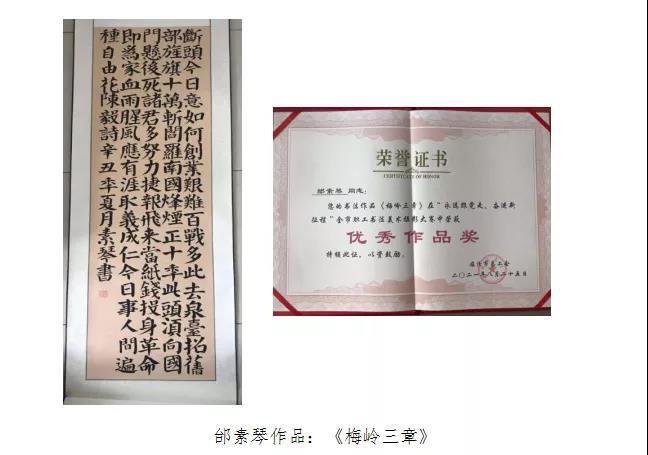 斷頭今日意如何創業艱難百戰多此去泉臺招舊
部旌旗十萬斬閻羅南國烽煙正十秊此頭湏向國
門懸後死諸君多努力捷報飛来當紙錢投身革命
即爲家血雨腥風應有涯取義成仁今日事人間遍
種自由花陳毅詩辛丑秊夏月素琴書
荣誉证书
CERTIFICATE OF HONOR
邰素琴 同志:
您的书法作品《梅岭三章》在“永远跟党走、奋进新
征程”全市职工书法美术摄影大赛中荣获
优秀作品奖
特颁此证,以资鼓励。
市总工会
二〇二一年八月二十五日
邰素琴作品:《梅岭三章》